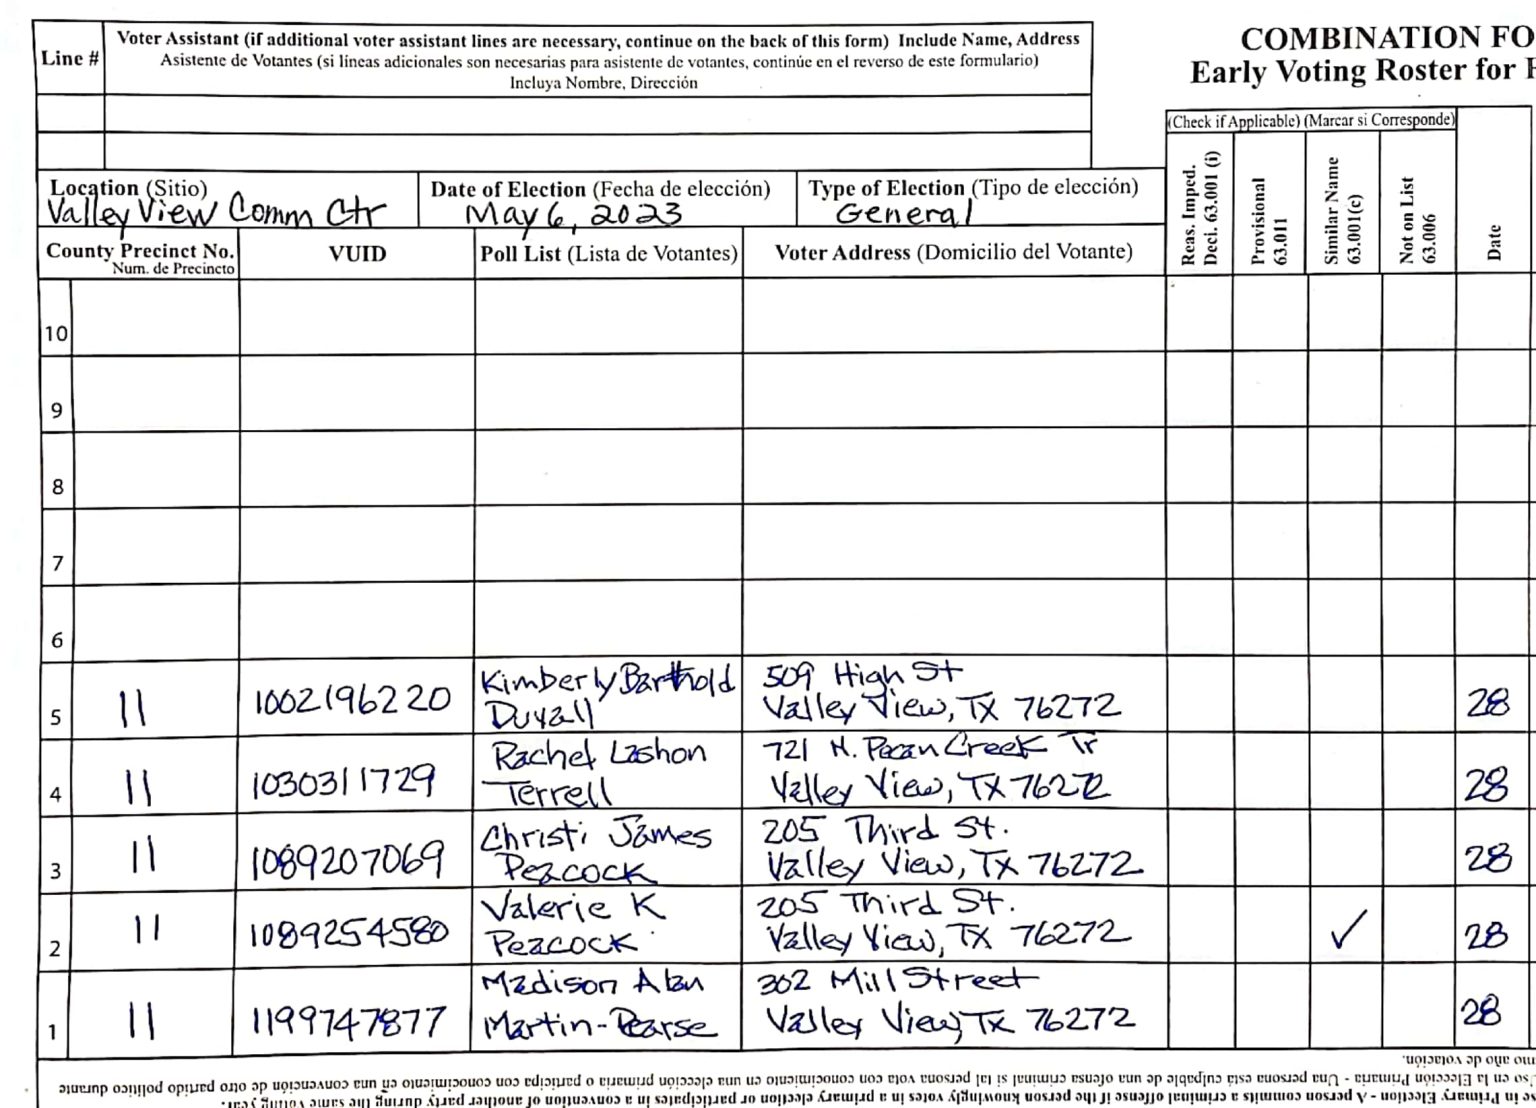 Line #
Voter Assistant (if additional voter assistant lines are necessary, continue on the back of this form) Include Name, Address
Asistente de Votantes (si líneas adicionales son necesarias para asistente de votantes, continúe en el reverso de este formulario)
Incluya Nombre, Dirección
COMBINATION FO
Early Voting Roster for
(Check if Applicable) (Marcar si Corresponde)
Reas. Imped.
Deci. 63.001 (i)
Provisional
63.011
Similar Name
63.001(c)
Not on List
63.006
Date
Location (Sitio)
Valley View Comm Ctr
Date of Election (Fecha de elección)
May 6, 2023
Type of Election (Tipo de elección)
General
County Precinct No.
Num. de Precincto
VUID
Poll List (Lista de Votantes)
Voter Address (Domicilio del Votante)
10
9
8
7
6
5 11 1002196220 Kimberly Barthold 509 High St
Duvall Valley View, TX 76272 28
4 11 1030311729 Rachel Lashon 721 N. Pecan Creek Tr
Terrell Valley View, TX 76272 28
3 11 1089207069 Christi James 205 Third St.
Peacock Valley View, TX 76272 28
2 11 1089254580 Valerie K 205 Third St.
Peacock Valley View, TX 76272 ✓ 28
1 11 1199747877 Madison Alan 302 Mill Street
Martin-Pearse Valley View, TX 76272 28
mo año de votación.
so en la Elección Primaria - Una persona está culpable de una ofensa criminal si tal persona vota con conocimiento en una elección primaria o participa con conocimiento en una convención de otro partido político durante
e in Primary Election - A person commits a criminal offense if the person knowingly votes in a primary election or participates in a convention of another party during the same voting year.